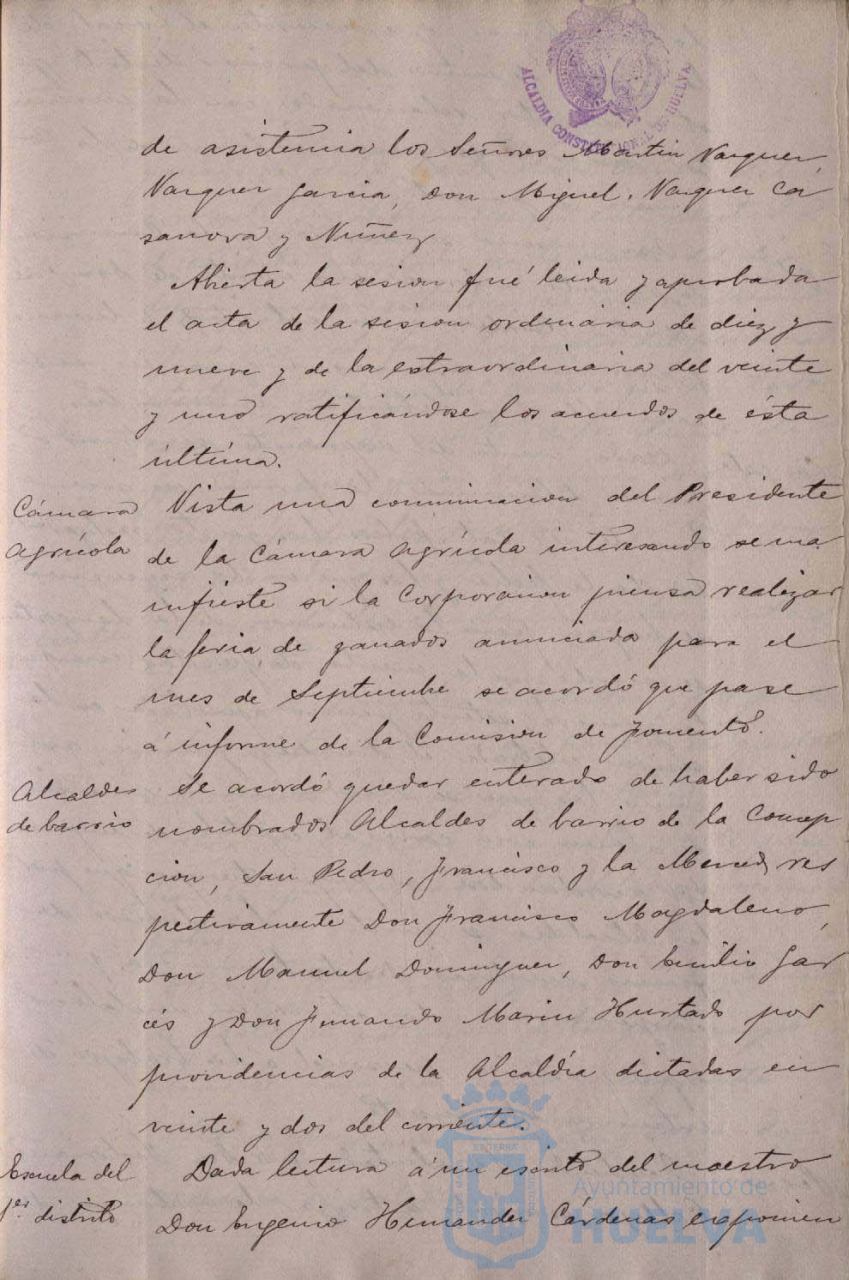 ALCALDIA CONSTITUCIONAL DE HUELVA
de asistencia los Señores Martin Vazquez,
Vazquez Garcia, Don Miguel, Vazquez Ca
sanova y Nuñez
Abierta la sesion fué leida y aprobada
el acta de la sesion ordinaria de diez y
nueve y de la extraordinaria del veinte
y uno ratificándose los acuerdos de ésta
última.
Cámara
Agrícola
Vista una comunicacion del Presidente
de la Cámara Agrícola interesando se ma
nifieste si la Corporacion piensa realizar
la feria de ganados anunciada para el
mes de Septiembre se acordó que pase
á informe de la Comision de Fomento.
Alcaldes
de barrio
Se acordó quedar enterado de haber sido
nombrados Alcaldes de barrio de la Concep
cion, San Pedro, Francisco y la Merced res
pectivamente Don Francisco Magdaleno,
Don Manuel Dominguez, Don Emilio Gar
cés y Don Fernando Marin Hurtado por
providencias de la Alcaldía dictadas en
veinte y dos del corriente.
Escuela del
1er distrito
Dada lectura á un escrito del maestro
Don Eugenio Hernandez Cárdenas exponien
Ayuntamiento de
HUELVA